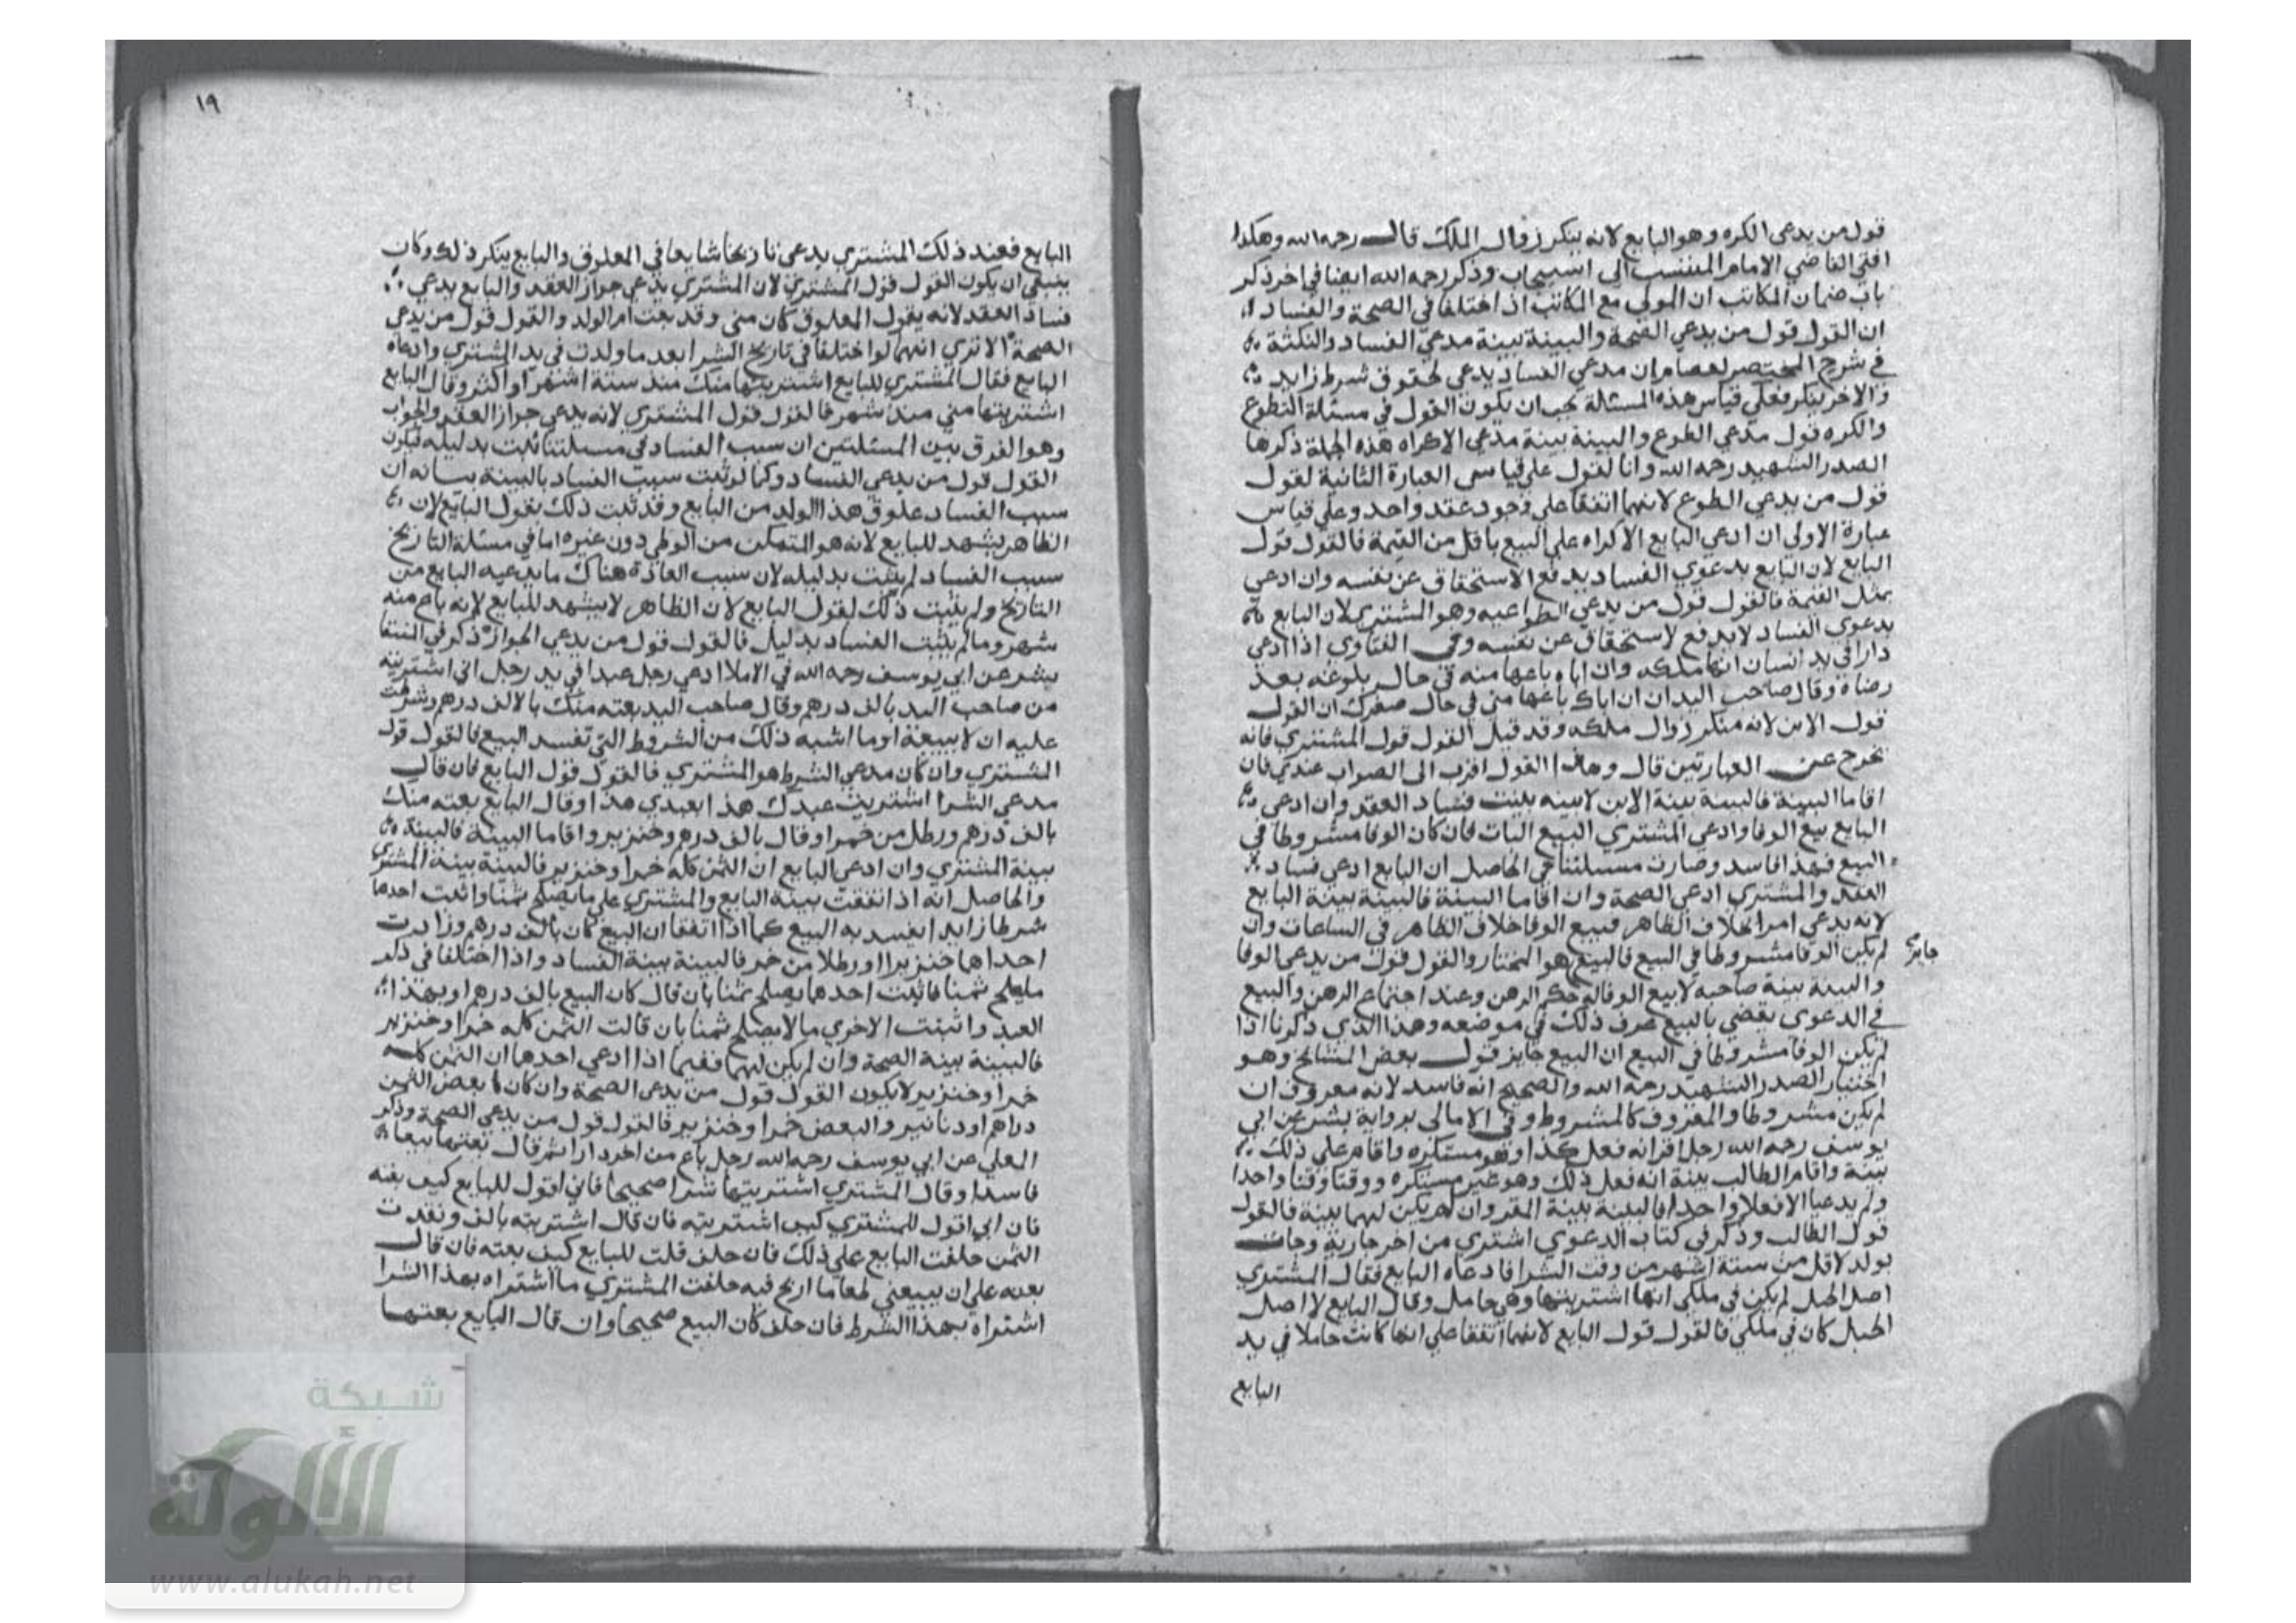 قول من يدعي الكره وهو البايع لانه ينكر زوال الملك قال رحمه الله وهكذا
افتي القاضي الامام المنتسب الي اسبيجاب وذكر رحمه الله ايضا في اخر ذكر
باب ضمان المكاتب ان المولي مع المكاتب اذا اختلفا في الصحة والفساد
ان القول قول من يدعي الصحة والبينة بينة مدعي الفساد والنكتة
في شرح المختصر لعصام ان مدعي الفساد يدعي لحقوق شرط زايد
والاخر ينكر فعلي قياس هذه المسئلة يجب ان يكون القول في مسئلة التطوع
والكره قول مدعي الطوع والبينة بينة مدعي الاكراه هذه الجملة ذكرها
الصدر الشهيد رحمه الله وانا نقول علي قياس العبارة الثانية لقول
قول من يدعي الطوع لانهما اتفقا علي وجود عقد واحد وعلي قياس
عبارة الاولي ان ادعي البايع الاكراه علي البيع باقل من القيمة فالقول قول
البايع لان البايع بدعوي الفساد يدفع الاستحقاق عن نفسه وان ادعي
بمثل القيمة فالقول قول من يدعي الطواعيه وهو المشتري لان البايع
بدعوي الفساد لا يدفع الاستحقاق عن نفسه وفي الفتاوي اذا ادعي
دارا في يد انسان انها ملكه وان اباه باعها منه في حال بلوغه بعد
رضاه وقال صاحب اليد ان اباك باعها مني في حال صغرك ان القول
قول الابن لانه منكر زوال ملكه وقد قيل القول قول المشتري فانه
يخرج عن العبارتين قال وهذا القول اقرب الي الصواب عندي فان
اقاما البينة فالبينة بينة الابن لانه يثبت فساد العقد وان ادعي
البايع بيع الوفا وادعي المشتري البيع البات فان كان الوفا مشروطا في
البيع فهذا فاسد وصارت مسئلتنا هي الحاصل ان البايع ادعي فساد
العقد والمشتري ادعي الصحة وان اقاما البينة فالبينة بينة البايع
لانه يدعي امرا بخلاف الظاهر فبيع الوفا خلاف الظاهر في البياعات وان
لم يكن الوفا مشروطا في البيع فالبيع هو المختار والقول قول من يدعي الوفا
جايز
والبينة بينة صاحبه لا بيع الوفا له حكم الرهن وعند اجتماع الرهن والبيع
في الدعوي يقضي بالبيع عرف ذلك في موضعه وهذا الذي ذكرنا اذا
لم يكن الوفا مشروطا في البيع ان البيع جايز قول بعض المشايخ وهو
اختيار الصدر الشهيد رحمه الله والصحيح انه فاسد لانه معروف ان
لم يكن مشروطا والمعروف كالمشروط وفي الامالي برواية بشر عن ابي
يوسف رحمه الله رجل اقر انه فعل كذا وهو مستكره واقام علي ذلك
بينة واقام الطالب بينة انه فعل ذلك وهو غير مستكره ووقتا وقتا واحدا
ولم يدعيا الا فعلا واحدا فالبينة بينة المقر وان لم يكن لهما بينة فالقول
قول الطالب وذكر في كتاب الدعوي اشتري من اخر جارية وجات
بولد لاقل من ستة اشهر من وقت الشرا فادعاه البايع فقال المشتري
اصل الحبل لم يكن في ملكي انها اشتريتها وهي حامل وقال البايع لا اصل
الحبل كان في ملكي فالقول قول البايع لانهما اتفقا علي انها كانت حاملا في يد
البايع
١٩
البايع فعند ذلك المشتري يدعي تاريخا سابقا في العلوق والبايع ينكر ذلك وكان
ينبغي ان يكون القول قول المشتري لان المشتري يدعي جواز العقد والبايع يدعي
فساد العقد لانه يقول العلوق كان مني وقد بعت ام الولد والقول قول من يدعي
الصحة الا تري انهما لو اختلفا في تاريخ الشرا بعد ما ولدت في يد المشتري وادعاه
البايع فقال المشتري للبايع اشتريتها منك منذ ستة اشهر او اكثر وقال البايع
اشتريتها مني منذ شهر فالقول قول المشتري لانه يدعي جواز العقد والجواب
وهو الفرق بين المسئلتين ان سبب الفساد في مسئلتنا ثابت بدليله فيكون
القول قول من يدعي الفساد وكما لو ثبت سبب الفساد بالبينة بيانه ان
سبب الفساد علوق هذا الولد من البايع وقد ثبت ذلك بقول البايع لان
الظاهر يشهد للبايع لانه هو المتمكن من الوطي دون غيره اما في مسئلة التاريخ
سبب الفساد لم يثبت بدليله لان سبب العادة هناك ما يدعيه البايع من
التاريخ ولم يثبت ذلك لقول البايع لان الظاهر لا يشهد للبايع لانه باع منه
شهر وما لم يثبت الفساد بدليل فالقول قول من يدعي الجواز ذكر في المنتقا
بشر عن ابي يوسف رحمه الله في الاملا ادعي رجل عبدا في يد رجل اني اشتريته
من صاحب اليد بالف درهم وقال صاحب اليد بعته منك بالالف درهم وشرطت
عليه ان لا يبيعه او ما اشبه ذلك من الشروط التي تفسد البيع فالقول قول
المشتري وان كان مدعي الشرط هو المشتري فالقول قول البايع فان قال
مدعي الشرا اشتريت عبدك هذا بعبدي هذا وقال البايع بعته منك
بالف درهم ورطل من خمر او قال بالف درهم وخنزير واقاما البينة فالبينة
بينة المشتري وان ادعي البايع ان الثمن كله خمرا وخنزير فالبينة بينة المشتري
والحاصل انه اذا اتفقت بينة البايع والمشتري علي ما يصلح ثمنا واثبت احدهما
شرطا زايدا يفسد به البيع كما اذا اتفقا ان البيع كان بالف درهم وزادت
احداهما خنزيرا او رطلا من خمر فالبينة بينة الفساد واذا اختلفا في ذكر
ما يصلح ثمنا فاثبت احدهما يصلح ثمنا بان قال كان البيع بالف درهم او بهذا
العبد واثبتت الاخري ما لا يصلح ثمنا بان قالت الثمن كله خمرا وخنزير
فالبينة بينة الصحة وان لم يكن لهما ففيما اذا ادعي احدهما ان الثمن كله
خمرا وخنزير لا يكون القول قول من يدعي الصحة وان كان بعض الثمن
دراهم او دنانير والبعض خمرا وخنزير فالقول قول من يدعي الصحة وذكر
المعلي عن ابي يوسف رحمه الله رجل باع من اخر دارا ثم قال بعتها بيعا
فاسدا وقال المشتري اشتريتها شرا صحيحا فاني اقول للبايع كيف بعته
فان ابي اقول للمشتري كيف اشتريته فان قال اشتريته بالف ونقدت
الثمن حلفت البايع علي ذلك فان حلف قلت للبايع كيف بعته فان قال
بعته علي ان يبيعني طعاما اربح فيه حلفت المشتري ما اشتراه بهذا الشرا
اشتراه بهذا الشرط فان حلف كان البيع صحيحا وان قال البايع بعتها
شبكة
الألوكة
www.alukah.net